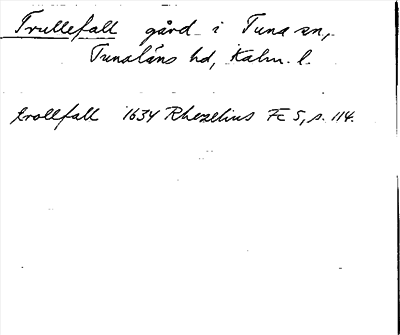 Trullefall gård i Tuna sn,
Tunaläns hd, Kalm. l.
trollfall 1634 Rhezelius FC 5, s. 114.